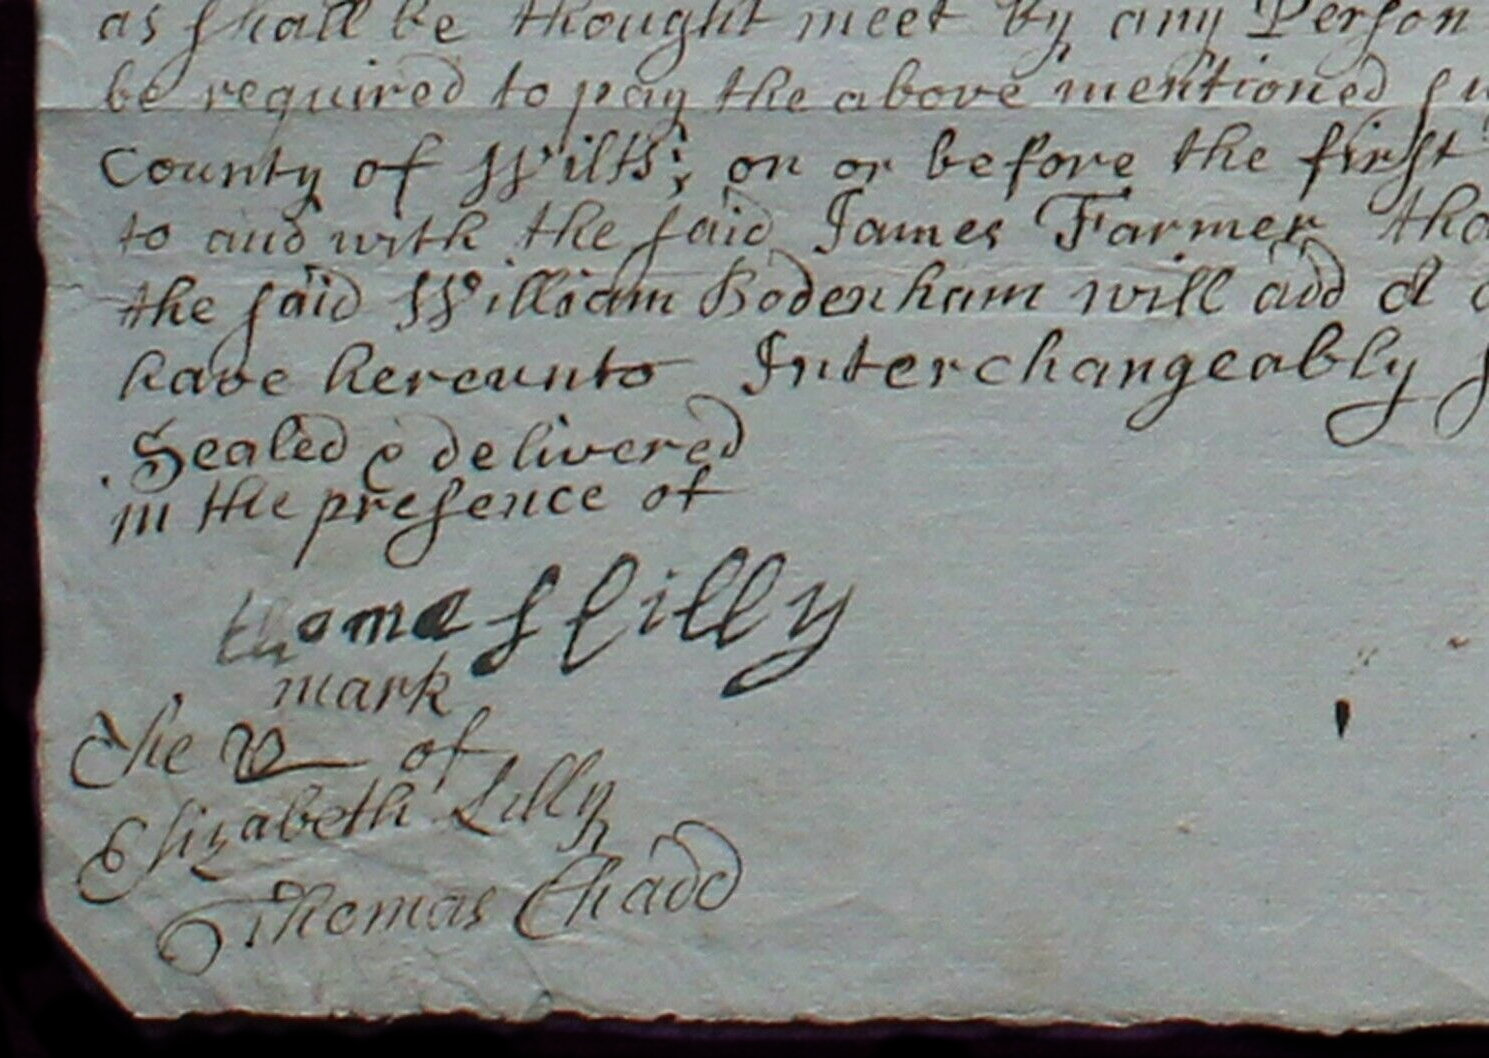 as shall be thought meet by any Person
be required to pay the above mentioned su
County of Wilts; on or before the first
to and with the said James Farmer tha
the said William Bodenham will add &
have hereunto Interchangeably s
Sealed & delivered
in the presence of
thomas lilly
mark
The of
Elizabeth Lilly
Thomas Chadd